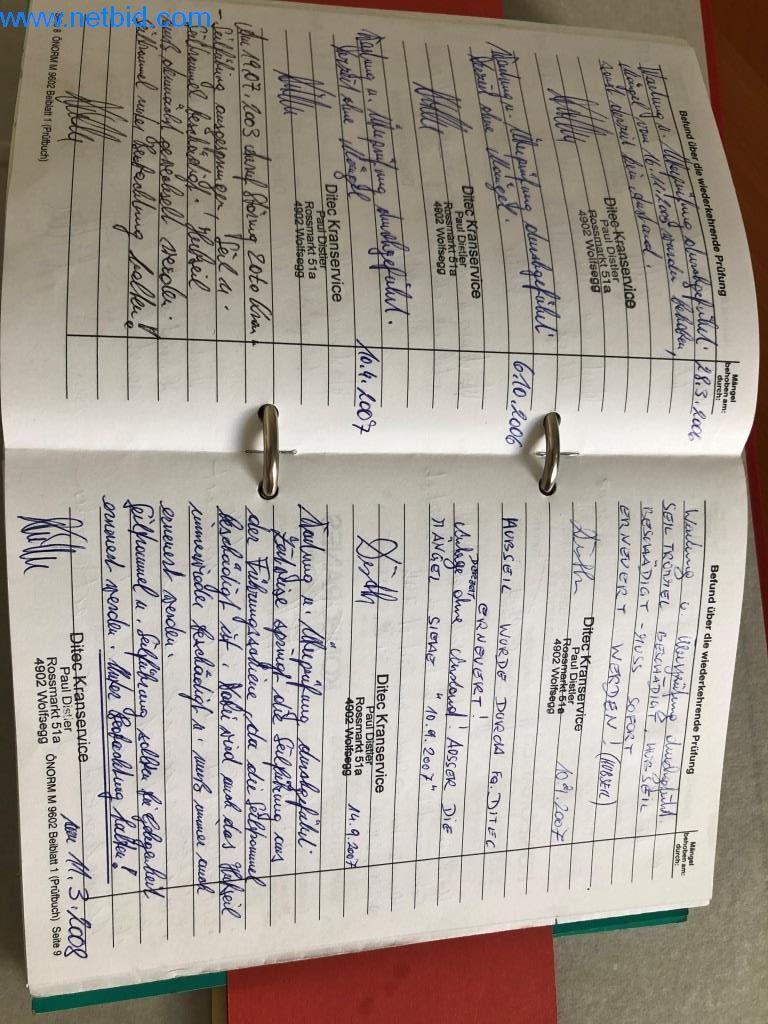 www.netbid.com
Befund über die wiederkehrende Prüfung
Mängel
behoben am:
durch:
Wartung u. Überprüfung durchgeführt. 28.3.2006
Mängel vom 16.11.2005 wurden behoben,
sonst derzeit kein Anstand.
Ditec Kranservice
Paul Distler
Rossmarkt 51a
4902 Wolfsegg
Wartung u. Überprüfung durchgeführt
derzeit ohne Mängel. 6.10.2006
Ditec Kranservice
Paul Distler
Rossmarkt 51a
4902 Wolfsegg
Wartung u. Überprüfung durchgeführt.
derzeit ohne Mängel 10.4.2007
Ditec Kranservice
Paul Distler
Rossmarkt 51a
4902 Wolfsegg
19.07.2003 Störung
- Seilführung ausgesprungen, Seil u.
Seiltrommel beschädigt! Hubseil
muß demnächst gewechselt werden.
Seiltrommel unter Beobachtung halten!
8 ÖNORM M 9602 Beiblatt 1 (Prüfbuch)
Befund über die wiederkehrende Prüfung
Mängel
behoben am:
durch:
Wartung u Überprüfung durchgeführt.
SEILTROMMEL BESCHÄDIGT, HUBSEIL
BESCHÄDIGT - MUSS SOFORT
ERNEUERT WERDEN! (HUBSEIL)
10.9.2007
Ditec Kranservice
Paul Distler
Rossmarkt 51a
4902 Wolfsegg
HUBSEIL WURDE DURCH FA. DITEC
ERNEUERT!
DERZEIT
Anlage ohne Anstand! AUSSER DIE
MÄNGEL SIEHE "10.9.2007"
14.9.2007
Ditec Kranservice
Paul Distler
Rossmarkt 51a
4902 Wolfsegg
Wartung u. Überprüfung durchgeführt.
Zeitweise springt die Seilführung aus
der Führungsschiene, da die Seiltrommel
beschädigt ist. Dabei wird auch das Hubseil
immer wieder beschädigt u. muß immer auch
erneuert werden.
Seiltrommel u. Seilführung sollten bei Gelegenheit
erneuert werden. Unter Beobachtung halten!
11.3.2008
Ditec Kranservice
Paul Distler
Rossmarkt 51a
4902 Wolfsegg
ÖNORM M 9602 Beiblatt 1 (Prüfbuch) Seite 9